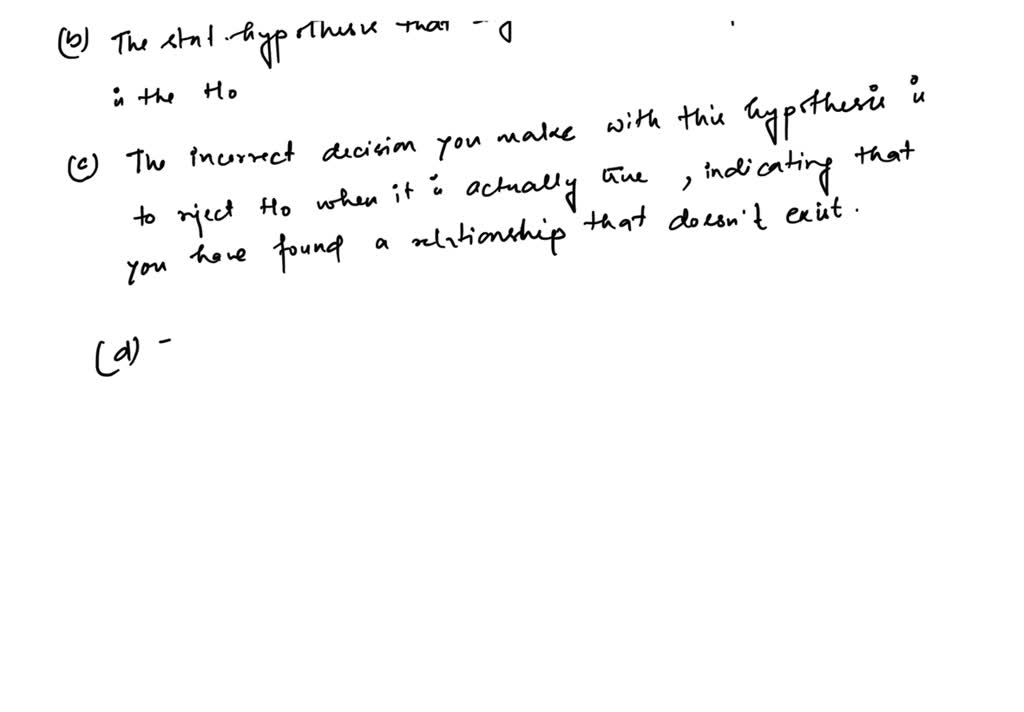 (b) The stat. hypothesis that
is the Ho
(c) The incorrect decision you make with this hypothesis is
to reject Ho when it is actually true, indicating that
you have found a relationship that doesn't exist.
(d) -